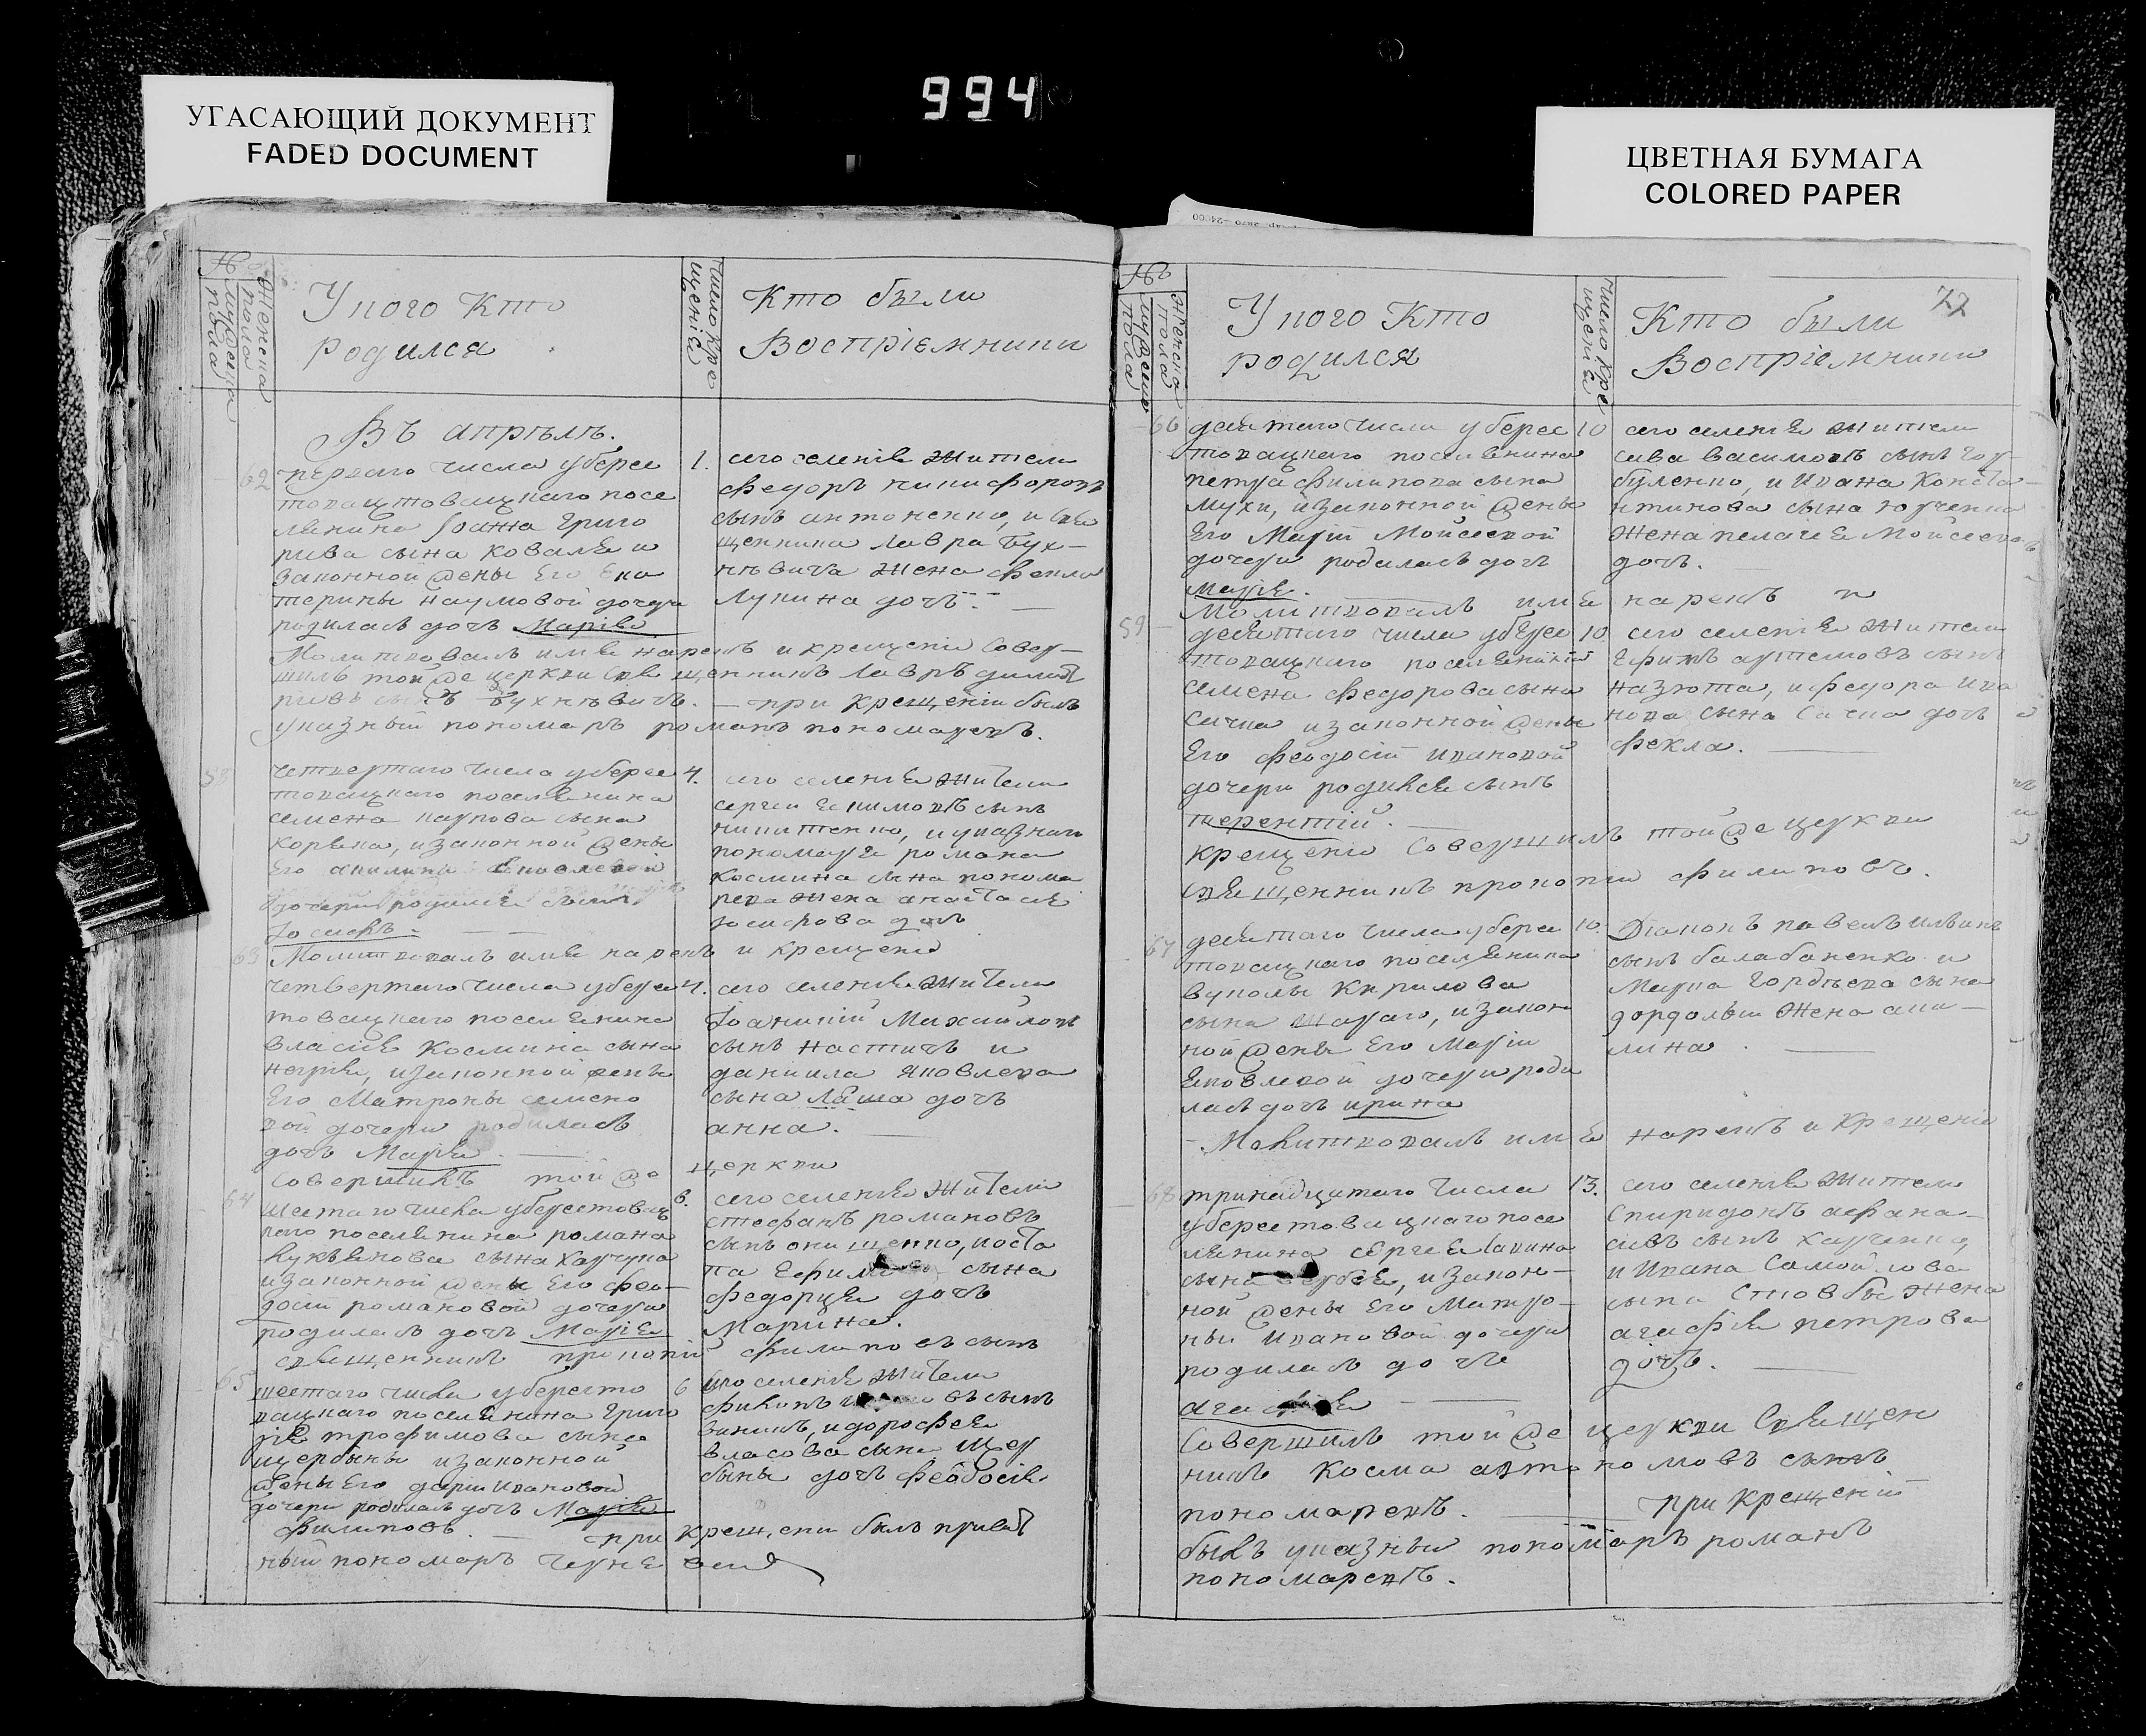 УГАСАЮЩИЙ ДОКУМЕНТ
FADED DOCUMENT
994
ЦВЕТНАЯ БУМАГА
COLORED PAPER
№
женска пола
мужеска пола
У кого Кто
родился
число кре
щенїя
Кто были
Воспрїемники
Въ апрѣлѣ.
62 первого числа у берес 1.
товацкаго посе
лянина Іоанна Григо
рїева сына коваля и
законной жены Его Ека
терины наумовой дочери
родилась дочь Марїя
сего селенїя жители
федоръ никифоровъ
сынъ антоненко, и свя
щенника Лавра Бух-
невича жена фекла
Лукина дочь.
Молитвовалъ имя нарекъ и крещенїе Совер-
шилъ той же церкви священникъ Лавръ
сынъ Бухневичъ. - при Крещенїи былъ
указный пономарь романъ пономаревъ.
58 четвертаго числа у берес 4.
товацкаго поселянина
семена карпова сына
Коряка, и законной жены
Его Яковлевой
дочери родился сынъ
Іосифъ.
сего селенїя жители
сергей Екимовъ сынъ
никитенко, и указнаго
пономаря романа
космина сына понома
рева жена анастасїя
Іосифова дочь
63 Молитвовалъ имя нарекъ и крещенїе
четвертаго числа у берес 4.
товацкаго поселянина
власїя Космина сына
и законной жены
Его Матроны семено
вой дочери родилась
дочь Марїя.
сего селенїя жители
Іоаникїй Михайловъ
сынъ настичъ и
данїила яковлева
сына Лаша дочь
анна.
Совершилъ той же церкви
64 шестаго числа у берестовац 6.
каго поселянина романа
Лукьянова сына
и законной жены Его Фео-
досїи романовой дочери
родилась дочь Марїя
сего селенїя жители
стефанъ романовъ
сынъ онищенко, поста
сына
федорця дочь
Марина.
священникъ прокопїй филиповъ сынъ
65 шестаго числа у бересто 6
вацкаго поселянина Григо
рїя трофимова сына
щербины и законной
жены Его дарїи Ивановой
дочери родилась дочь Марїя
сего селенїя жители
въ сынъ
и дорофея
власова сына щер
бины дочь феодосїя.
филиповъ. - при крещенїи былъ приват
ный пономарь
№
женска пола
мужеска пола
У кого Кто
родился
число кре
щенїя
Кто были
Воспрїемники
72
66 десятаго числа у берес 10
товацкаго поселянина
петра филипова сына
Мухи, и законной жены
Его Марїи Мойсеевой
дочери родилась дочь
Марїя.
сего селенїя жители
сава васильевъ сынъ
и Ивана Конста-
нтинова сына
жена пелагея Мойсеева
дочь.
Молитвовалъ имя нарекъ и
59 десятаго числа у берес 10
товацкаго поселянина
семена федорова сына
и законной жены
Его феодосїи ивановой
дочери родился сынъ
терентїй.
сего селенїя жители
Ефимъ артемовъ сынъ
и федора ива
нова сына дочь
фекла.
крещенїе Совершилъ той же церкви
священникъ прокопїй филиповъ.
67 десятаго числа у берес 10.
товацкаго поселянина
вуколы Кирилова
сына шараго, и закон
ной жены Его Марїи
Яковлевой дочери роди
лась дочь ирина
Дїаконъ павелъ ильинъ
сынъ балабаненко и
Марка Гордѣева сына
жена аки-
лина.
- Молитвовалъ имя нарекъ и Крещенїе
68 тринадцатаго числа 13.
у берестовацкаго посе
лянина сергея савина
сына и закон-
ной жены Его Матро-
ны Ивановой дочери
родилась дочь
агафїя
сего селенїя жители
Спиридонъ афана-
сїевъ сынъ харченко,
и Ивана Самойлова
сына жена
агафїя петрова
дочь.
Совершилъ той же церкви Священ
никъ Косма автономовъ сынъ
пономаревъ. при крещенїи
былъ указный пономарь романъ
пономаревъ.